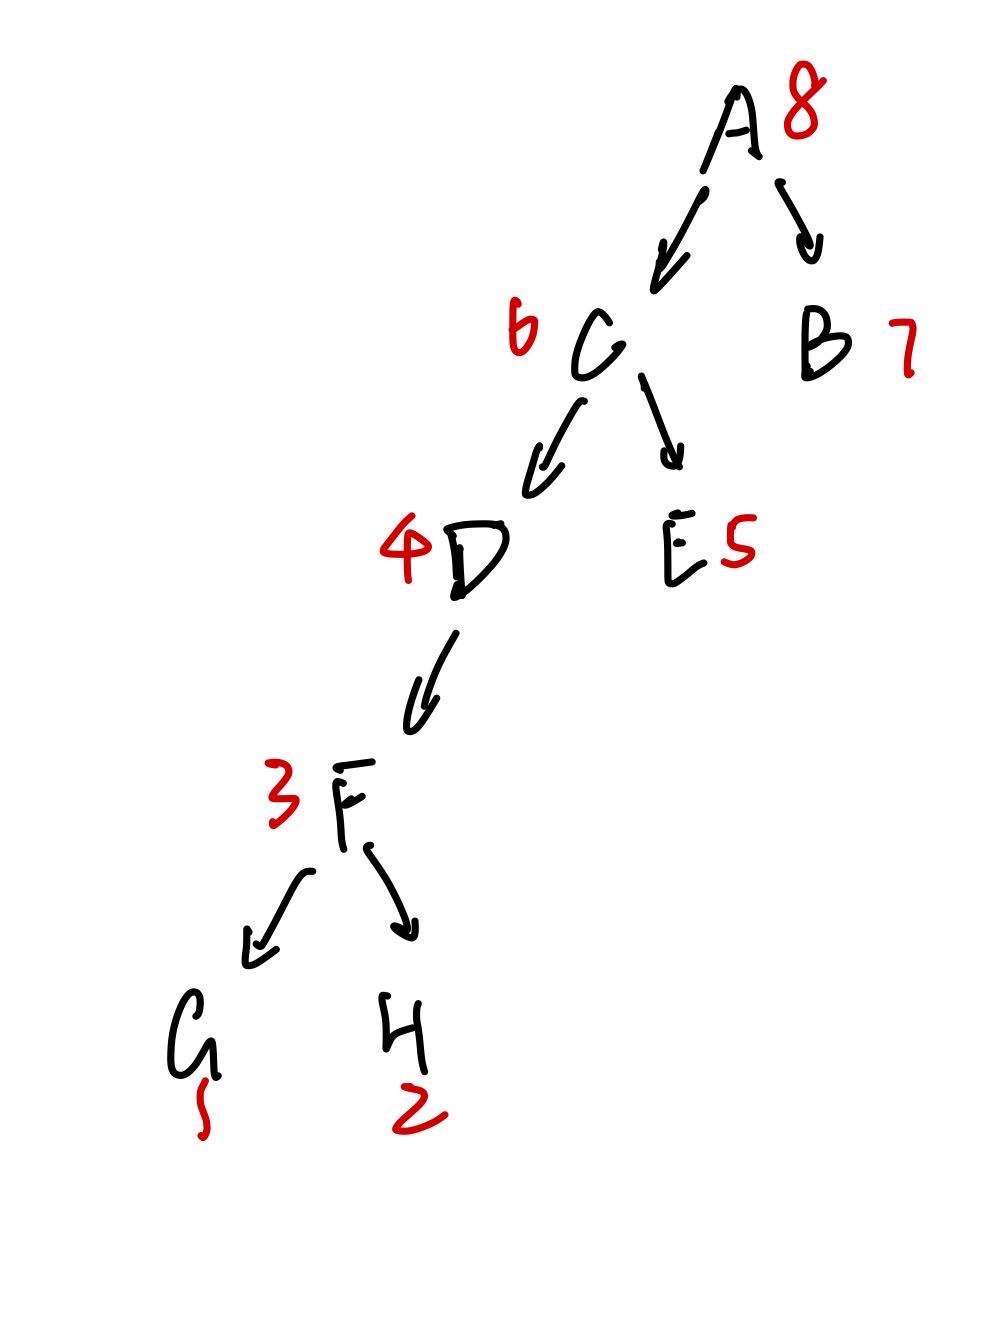 A 8
6 C B 7
4 D E 5
3 F
G H
1 2